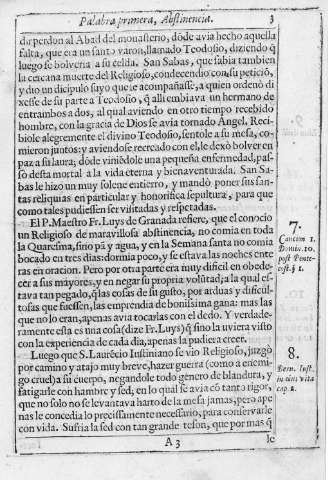 Palabra primera, Abstinencia. 3
dir perdon al Abad del monasterio, dōde avia hecho aquella
falta, que era un santo varon, llamado Teodosio, diziendo q̃
luego se bolveria a su celda. San Sabas, que sabia tambien
la cercana muerte del Religioso, condecendio con su peticiō,
y dio un dicipulo suyo que le acompañasse, a quien ordenò di
xesse de su parte a Teodosio, q̃ alli embiava un hermano de
entrambos a dos, al qual aviendo en otro tiempo recebido
hombre, con la gracia de Dios se avia tornado Angel. Reci-
biole alegremente el divino Teodosio, sentole a su mesa, co-
mieron juntos: y aviendose recreado con el, le dexò bolver en
paz a su laura; dōde viniēdole una pequeña enfermedad, pas-
sò desta mortal a la vida eterna y bienaventurada. San Sa-
bas le hizo un muy solene entierro, y mandò poner sus san-
tas reliquias en particular y honorifica sepultura, para que
como tales pudiessen ser visitadas y respetadas.
El P. Maestro Fr. Luys de Granada refiere, que el conocio
un Religioso de maravillosa abstinencia, no comia en toda
la Quaresma, sino pā y agua, y en la Semana santa no comia
bocado en tres dias: dormia poco, y se estava las noches ente
ras en oracion. Pero por otra parte era muy dificil en obede-
cer a sus mayores, y en negar su propia volūtad; a la qual es-
tava tan pegado, q̃ las cosas de su gusto, por arduas y dificul-
tosas que fuessen, las emprendia de bonissima gana: mas las
que no lo eran, apenas avia tocarlas con el dedo. Y verdade-
ramente esta es una cosa (dize Fr. Luys) q̃ sino la uviera visto
con la experiencia de cada dia, apenas la pudiera creer.
Luego que S. Laurēcio Iustiniano se vio Religioso, juzgò
por camino y atajo muy breve, hazer guerra (como a enemi-
go cruel) a su cuerpo, negandole todo genero de blandura, y
fatigarle con hambre y sed, en lo qual se avia cō tanto rigor,
que no solo no se levantava harto de la mesa jamas, pero ape
nas le concedia lo precissamente necessario, para conservarle
con vida. Sufria la sed con tan grande teson, que por mas q̃
A 3 le
7.
Concion 1.
Domin. 10.
post Pente-
cost. § 1.
8.
Bern. Iust.
in eius vita
cap. 2.